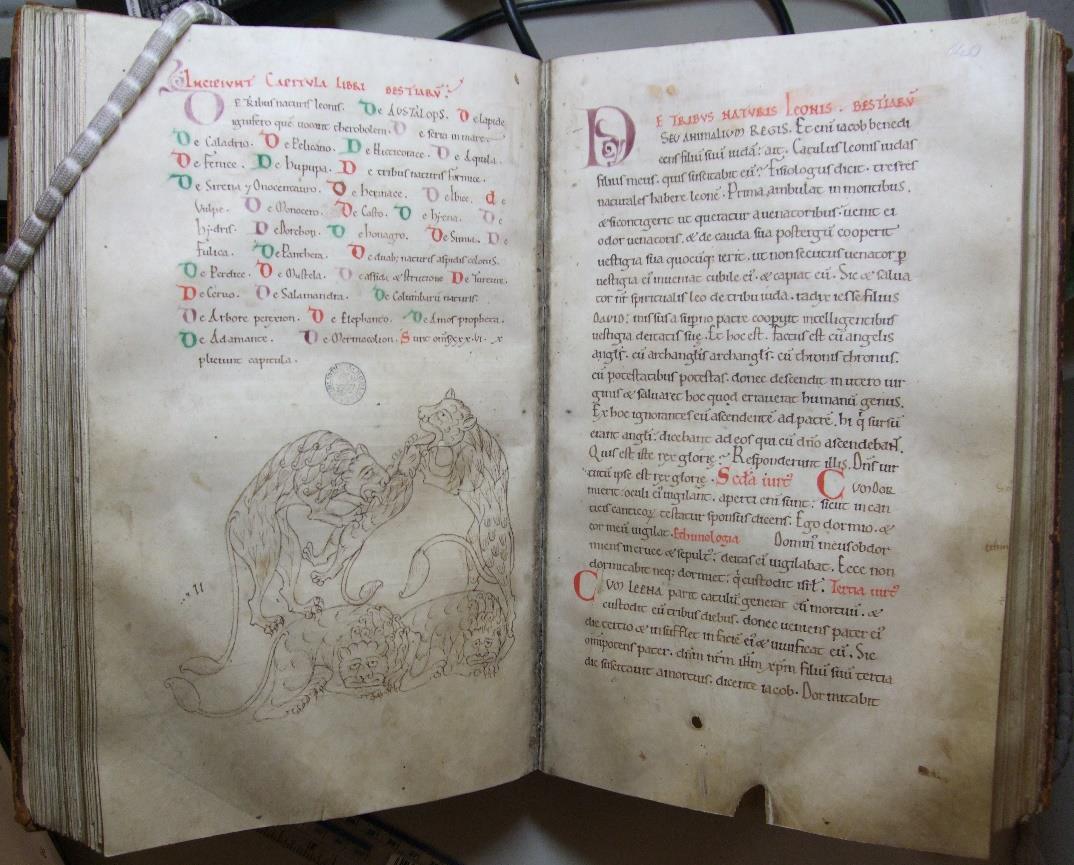 INCIPIUNT CAPITULA LIBRI BESTIARŪ.
De tribus naturis leonis. De AUSTALOPS. De lapide
ignifero quē uocant cherobolem. De serra in mare.
De Caladrio. De Pelicano. De Nicticorace. De Aquila.
De Fenice. De hupupa. De tribus naturis formice.
De Sirena ⁊ Onocentauro. De herinace. De Ibice. de
Vulpe. De Monocero. De Casto. De hiena. De
hydris. De Dorchon. De honagro. De Simia. De
Fulica. De Panthera. De duab; naturis aspidis
De Perdice. De Mustela. De assida & strucione De Turture.
De Ceruo. De Salamandra. De Columbarū naturis.
De Arbore perexion. De Elephanto. De Amos propheta.
De Adamante. De Mermacolion. Sunt
pletiunt capitula.
DE TRIBUS NATURIS Leonis. BESTIARŪ
SEU ANIMALIUM REGIS. Et eni iacob benedi
cens filiū suū iudā: ait. Catulus leonis iudas
filius meus. quis suscitabit eū? Fisiologus dicit. tres res
naturales habere leonē. Prima. ambulat in montibus.
& si contigerit ut queratur a uenatoribus. uenit ei
odor uenatoris. & de cauda sua postergū cooperit
uestigia sua quocūq; ierit. ut non secutus uenator p
uestigia eī inueniat cubile eī. & capiat eū. Sic & salua
tor nr̄ spiritalis leo de tribu iuda. radix iesse filius
DAVID. missus a supno patre cooperuit intelligentibus
uestigia deitatis suę. Et hoc est. factus est cū angelis
angls̄. cū archanglis archangls̄. cū thronis thronus.
cū potestatibus potestas. donec descendit in utero uir
ginis & saluaret hoc quod errauerat humanū genus.
Ex hoc ignorantes eū ascendentē ad patrē. hi q sursū
erant angli. dicebant ad eos qui cū dn̄o ascendebant.
Quis est iste rex glorię? Responderunt illis. Dn̄s uir
tutū ipse est rex glorię. Scd̄a CUM DOR
mierit. oculi eī uigilant. aperti eni sunt. sicut in can
ticis canticoꝝ testatur sponsus dicens. Ego dormio. &
cor meū uigilat. Ethimologia Domin̄ meus obdor
miens in cruce & sepult̄. deitas eī uigilabat. Ecce non
dormitabit neq; dormiet. q custodit isrl̄. Tertia
CUM LEENA parit catulū. generat eū mortuū. &
custodit eū tribus diebus. donec ueniens pater eī
die tertio & insufflet in faciē eī & uiuificat eū. Sic
omīpotens pater. dn̄m nr̄m ihm̄ xp̄m filiū suū tertia
die suscitauit a mortuis. dicente iacob. Dormitabit